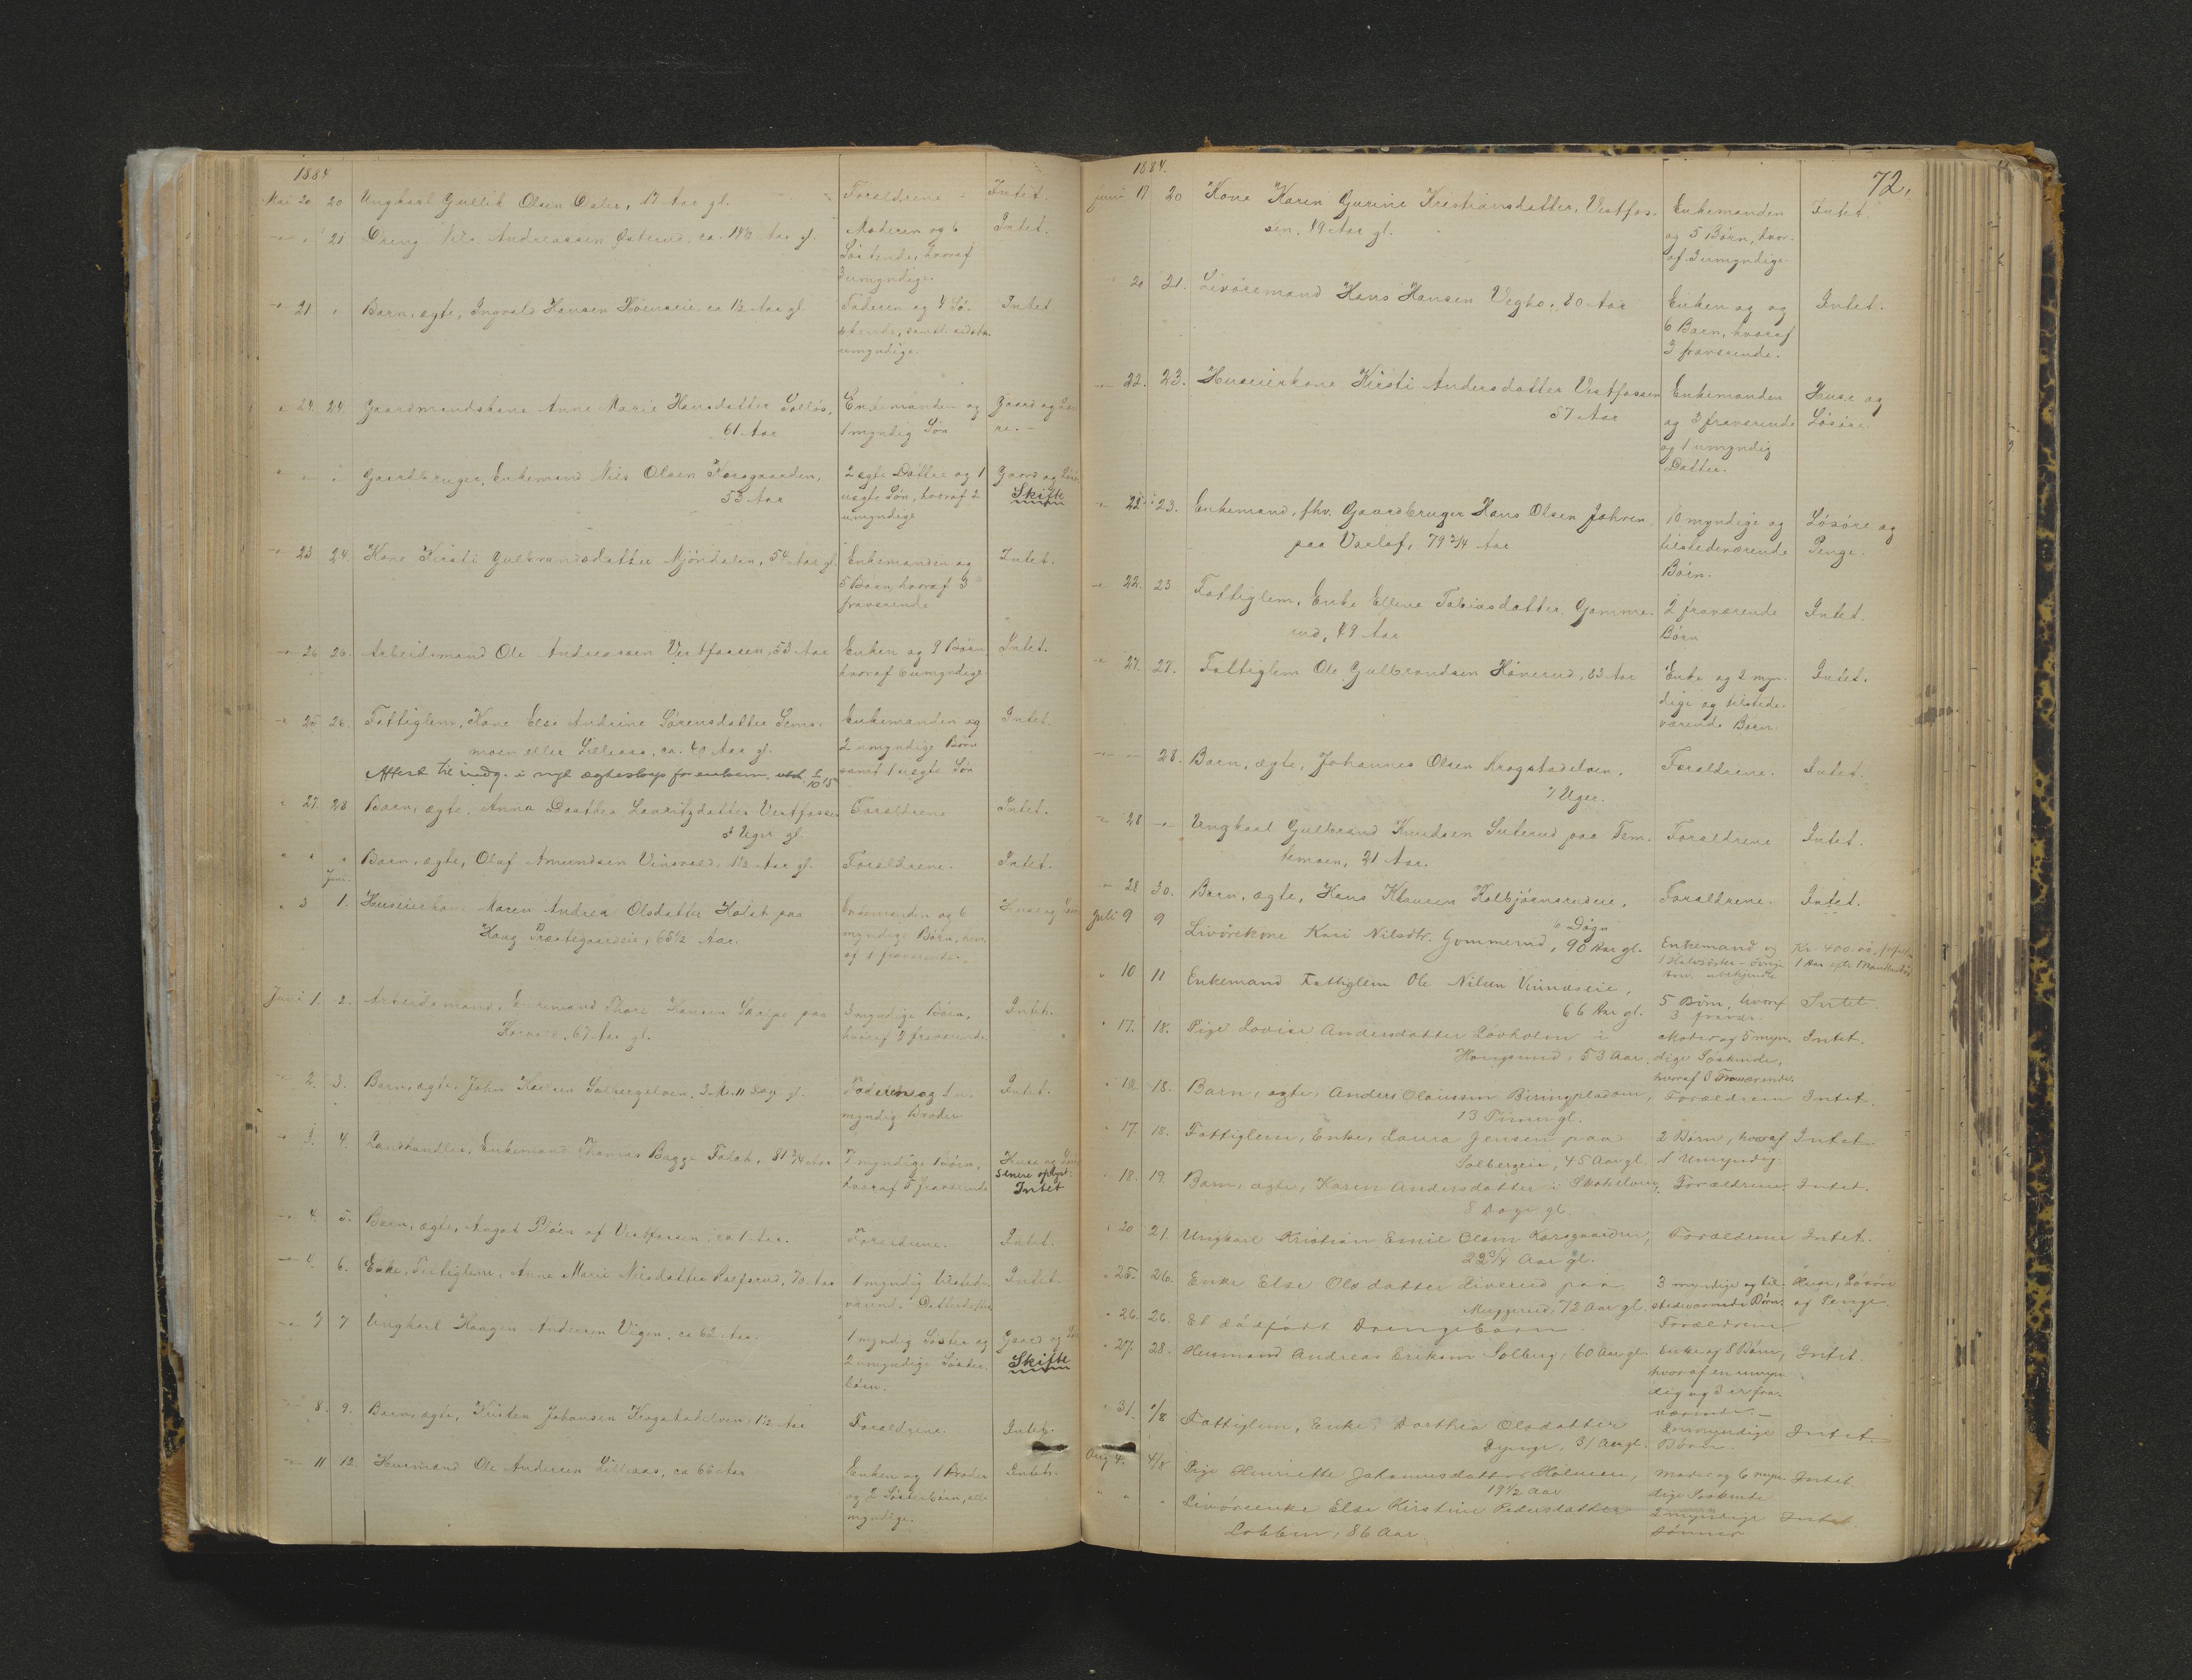 1884
Mai 20 20 Ungkarl Gullik Olsen Oster, 17 Aar gl. Forældrene Intet.
" 21 Dreng Nils Andreassen Østerud, ca. 14½ Aar gl. Moderen og 6 Intet.
Søskende, hvoraf
3 umyndige.
21 " Barn, ægte, Ingvald Hansen Horneie ca 1½ Aar gl. Faderen og 4 Sø- Intet
skende, samtl.
umyndige.
24. 24. Gaardmandskone Anne Marie Hansdatter Enkemanden og Gaard og Løsø-
61 Aar 1 myndig Søn re. -
" " Gaardbruger, Enkemand Nils Olsen Korsgaarden, 2 ægte Døttre og 1 Gaard og Løsøre
53 Aar uægte Søn, hvoraf 2 Skifte
umyndige
23 24. Kone Kirsti Gulbrandsdatter Mjøndalen, 54 Aar gl. Enkemanden og Intet.
5 Børn, hvoraf 3
fraværende
26 26. Arbeidsmand Ole Andreassen Vestfossen, 53 Aar Enken og 9 Børn Intet.
hvoraf 6 umyndige
25 26. Fattiglem, Kone Else Andrine Sørensdatter Enkemanden og Intet.
moen eller Lilleaas, ca. 40 Aar gl. 2 umyndige Børn
Attest til indg. i nyt ægteskap for enkem. utst. samt 1 uægte Søn
27. 28 Barn, ægte, Anna Dorthea Lauritzdatter Vestfossen Forældrene Intet.
3 Uger gl.
" " " Barn, ægte, Olaf Amundsen Vinsvold, 1½ Aar gl. Forældrene. Intet.
Juni.
" 3 1. Huseierkone Maren Andrea Olsdatter Holst paa Enkemanden og 6 Huse og
Haug Præstegaardeie, 65½ Aar. myndige Børn, hvor-
af 1 fraværende.
Juni 1. 2. Arbeidsmand, Enkemand Thore Hansen paa 3 myndige Børn, Intet.
67 Aar gl. hvoraf 2 fraværende
2. 3. Barn, ægte, John Solbergelven, 3 M. 11 Dag gl. Faderen og 1 u- Intet.
myndig Broder
3. 4. Landhandler, Enkemand Thomas Bagge Falch, 81¾ Aar 7 myndige Børn, Huse og
hvoraf 5 fraværende senere oplyst:
Intet
4. 5. Barn, ægte, August af Vestfossen, ca 1 Aar. Forældrene. Intet.
4. 6. Enke, Fattiglem, Anne Marie Nilsdatter 70 Aar 1 myndig tilstede- Intet.
værende Datterdatter
7 7 Ungkarl Haagen Andersen Vegen, ca 62 Aar. 1 myndig Søster og Gaard og
2 umyndige Søster- Skifte
børn.
8. 9. Barn, ægte, Kristen Johansen Krogstadelven, 1½ Aar Forældrene. Intet.
11 12. Husmand Ole Andersen Lilleaas, ca 65 Aar Enken og 1 Broder Intet.
og 2 Søsterbørn, alle
myndige.
72.
1884.
Juni 17 20 Kone Karen Gurine Kristiansdatter, Vestfos- Enkemanden Intet.
sen. 49 Aar gl. og 5 Børn, hvor-
af 3 umyndige.
20 21. Livøremand Hans Hansen Vegbo, 80 Aar Enken og og Intet.
6 Børn, hvoraf
3 fraværende.
22. 23. Huseierkone Kirsti Andersdatter Vestfossen Enkemanden Huse og
57 Aar og 3 fraværende Løsøre.
og 1 umyndig
Datter.
22. 23. Enkemand, fhv. Gaardbruger Hans Olsen Jahren 10 myndige og Løsøre og
paa Varlaf, 79 3/4 Aar tilstedeværende Penge.
Børn.
22. 23 Fattiglem, Enke Ellene Tobiasdatter, Gomme- 2 fraværende Intet.
rud, 49 Aar Børn
27. 27. Fattiglem Ole Gulbrandsen Hönerud, 83 Aar Enke og 2 myn- Intet.
dige og tilstede-
værende Børn.
28. Barn, ægte, Johannes Olsen Krogstadelven, Forældrene. Intet.
7 Uger.
28 Ungkarl Gulbrand Knudsen Suterud paa Tem- Forældrene Intet.
temoen, 21 Aar.
28 30. Barn, ægte, Hans Klausen Kolbjørnsrudeie, Forældrene. Intet.
6 Døgn
Juli 9 9 Livørekone Kari Nilsdtr. Gommerud, 90 Aar gl. Enkemand og Kr. 400
1 Halvsøster - øvrige 1 Aar efter Mandens
arv. ubekjendt
" 10 11 Enkemand Fattiglem Ole Nilsen Vinnæseie, 5 Børn, hvoraf Intet.
66 Aar gl. 3 fravær.
" 17. 18. Pige Lovise Andersdatter Løvholm i Moder og 5 myn- Intet.
Hougsund, 53 Aar. dige Søskende,
hvoraf 3 Fraværende.
" 18. 18. Barn, ægte, Anders Olaussen Forældrene Intet.
13 Timer gl.
" 17. 18. Fattiglem, Enke, Laura Jensen paa 2 Børn, hvoraf Intet.
Solbergeie, 45 Aar gl. 1 Umyndig.
18. 19. Barn, ægte, Karen Andersdatter i Skotselven, Forældrene. Intet.
8 Dage gl.
20 21. Ungkarl Kristian Emil Olsen Korsgaarden, Forældrene Intet.
22 3/4 Aar gl.
" 25. 26. Enke Else Olsdatter Liverud paa 3 myndige og til- Huse, Løsøre
Muggerud, 72 Aar gl. stedeværende Børn. og Penge.
" 26. 26. Et dødfødt Drengebarn Forældrene
" 27. 28. Husmand Andreas Eriksen Solberg, 60 Aar gl. Enke og 8 Børn, Intet.
hvoraf en umyn-
dig og 3 er fra-
værende. -
" 31. 1/8 Fattiglem, Enke, Dorthea Olsdatter umyndige Intet.
31 Aar gl. Børn.
Aug. 4. 4/8 Pige Henriette Johannesdatter Holmen, Moder og 6 myn- Intet.
19½ Aar dige Søskende
" " " Livøreenke Else Kirstine Pedersdatter 2 myndige Intet.
Lobben, 86 Aar. Sønner